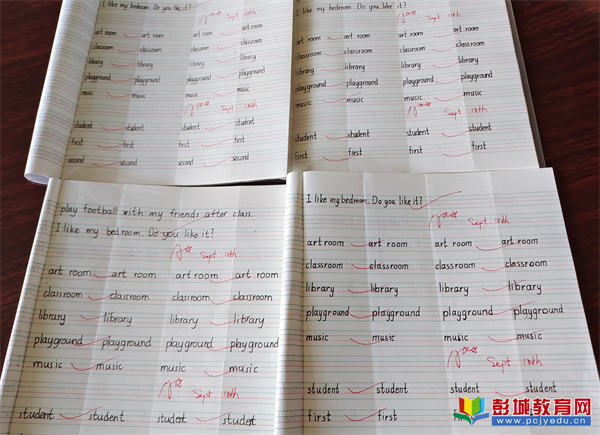 I like my bedroom. Do you like it?
Sept 18th
art room art room art room art room
classroom classroom classroom classroom
library library library library
playground playground playground playground
music music music music
Sept 18th
student student student student
first first first first
second second second second
I like my bedroom. Do you like it?
Sept 18th
art room art room art room art room
classroom classroom classroom classroom
library library library library
playground playground playground playground
music music music music
Sept 18th
student student student student
first first first first
play football with my friends after class.
I like my bedroom. Do you like it?
Sept 18th
art room art room art room art room
classroom classroom classroom classroom
library library library library
playground playground playground playground
music music music music
Sept 18th
student student student student
I like my bedroom. Do you like it?
Sept 18th
art room art room art room art room
classroom classroom classroom classroom
library library library library
playground playground playground playground
music music music music
Sept 18th
student student student student
first first first
彭城教育网
www.pcjyedu.cn